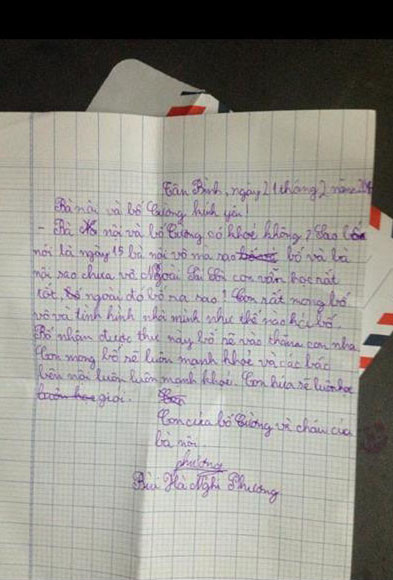 Tân Bình, ngày 21 tháng 2 năm
Bà nội và bố Cường kính yên!
- Bà nội và bố Cường có khoẻ không? Sao
nói là ngày 15 bà nội vô mà sao bố và bà
nội sao chưa vô. Ngoài Sài Gòn con vẫn học rất
tốt, ngoài đó bố ra sao! Con rất mong bố
vô và tình hình nhà mình như thế nào hả bố.
Bố nhận được thư này bố nê vào thăm con nha.
Con mong bố nê luôn mạnh khoẻ và các bác
bên nội luôn luôn mạnh khoẻ. Con hứa sẽ luôn học
giỏi.
Con của bố Cường và cháu của
bà nội
phương
Bùi Hà Nghi Phương